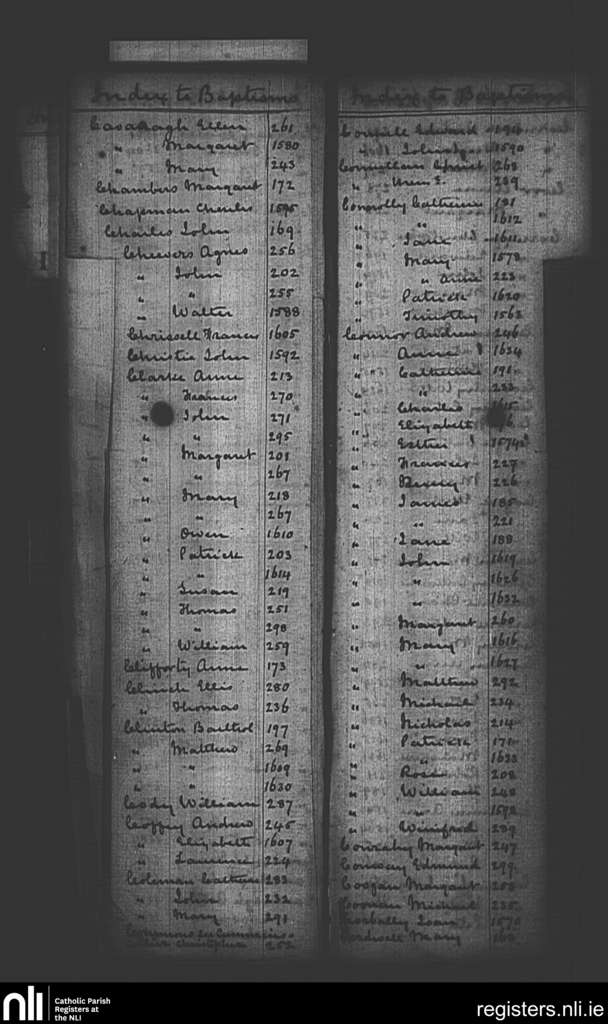 Index to Baptisms
Casanagh Ellen 261
" Margaret 1580
" Mary 243
Chambers Margaret 172
Chapman Charles 1595
Charles John 169
Cheevers Agnes 256
" John 202
" " 255
" Walter 1588
Chrissell Francis 1605
Christie John 1592
Clarke Anne 213
" Frances 270
" John 271
" " 295
" Margaret 201
" " 267
" Mary 218
" " 267
" Owen 1610
" Patrick 203
" " 1614
" Susan 219
" Thomas 251
" " 298
" William 259
Clifforty Anne 173
Clinch Ellis 280
" Thomas 236
Clinton 197
" Matthew 269
" " 1609
" " 1630
Cody William 287
Coffey Andrew 245
" Elizabeth 1607
" Laurence 224
Coleman Catherine 283
" John 232
" Mary 291
Commons see Cummins
Christopher 252
Index to Baptisms
Edward 194
" John 1590
268
" 239
Connolly Catherine 191
" " 1612
" Jane 1611
" Mary 1578
" " Anne 223
" Patrick 1620
" Timothy 1563
Connor Andrew 246
" Anne 1634
" Catherine 191
" " 233
" Charles
" Elizabeth
" Esther 1574
" Frances 227
" Henry 226
" James 185
" " 221
" Jane 188
" John 1619
" " 1626
" " 1632
" Margaret 260
" Mary 1616
" " 1627
" Matthew 292
" Michael 234
" Nicholas 214
" Patrick 171
" " 1633
" Rose 208
" William 248
" " 1592
" Winifred 289
Margaret 247
Conway Edmund 299
Margaret 258
Michael 235
Corbally Joan 1570
Cordwell Mary
nli
Catholic Parish
Registers at
the NLI
registers.nli.ie